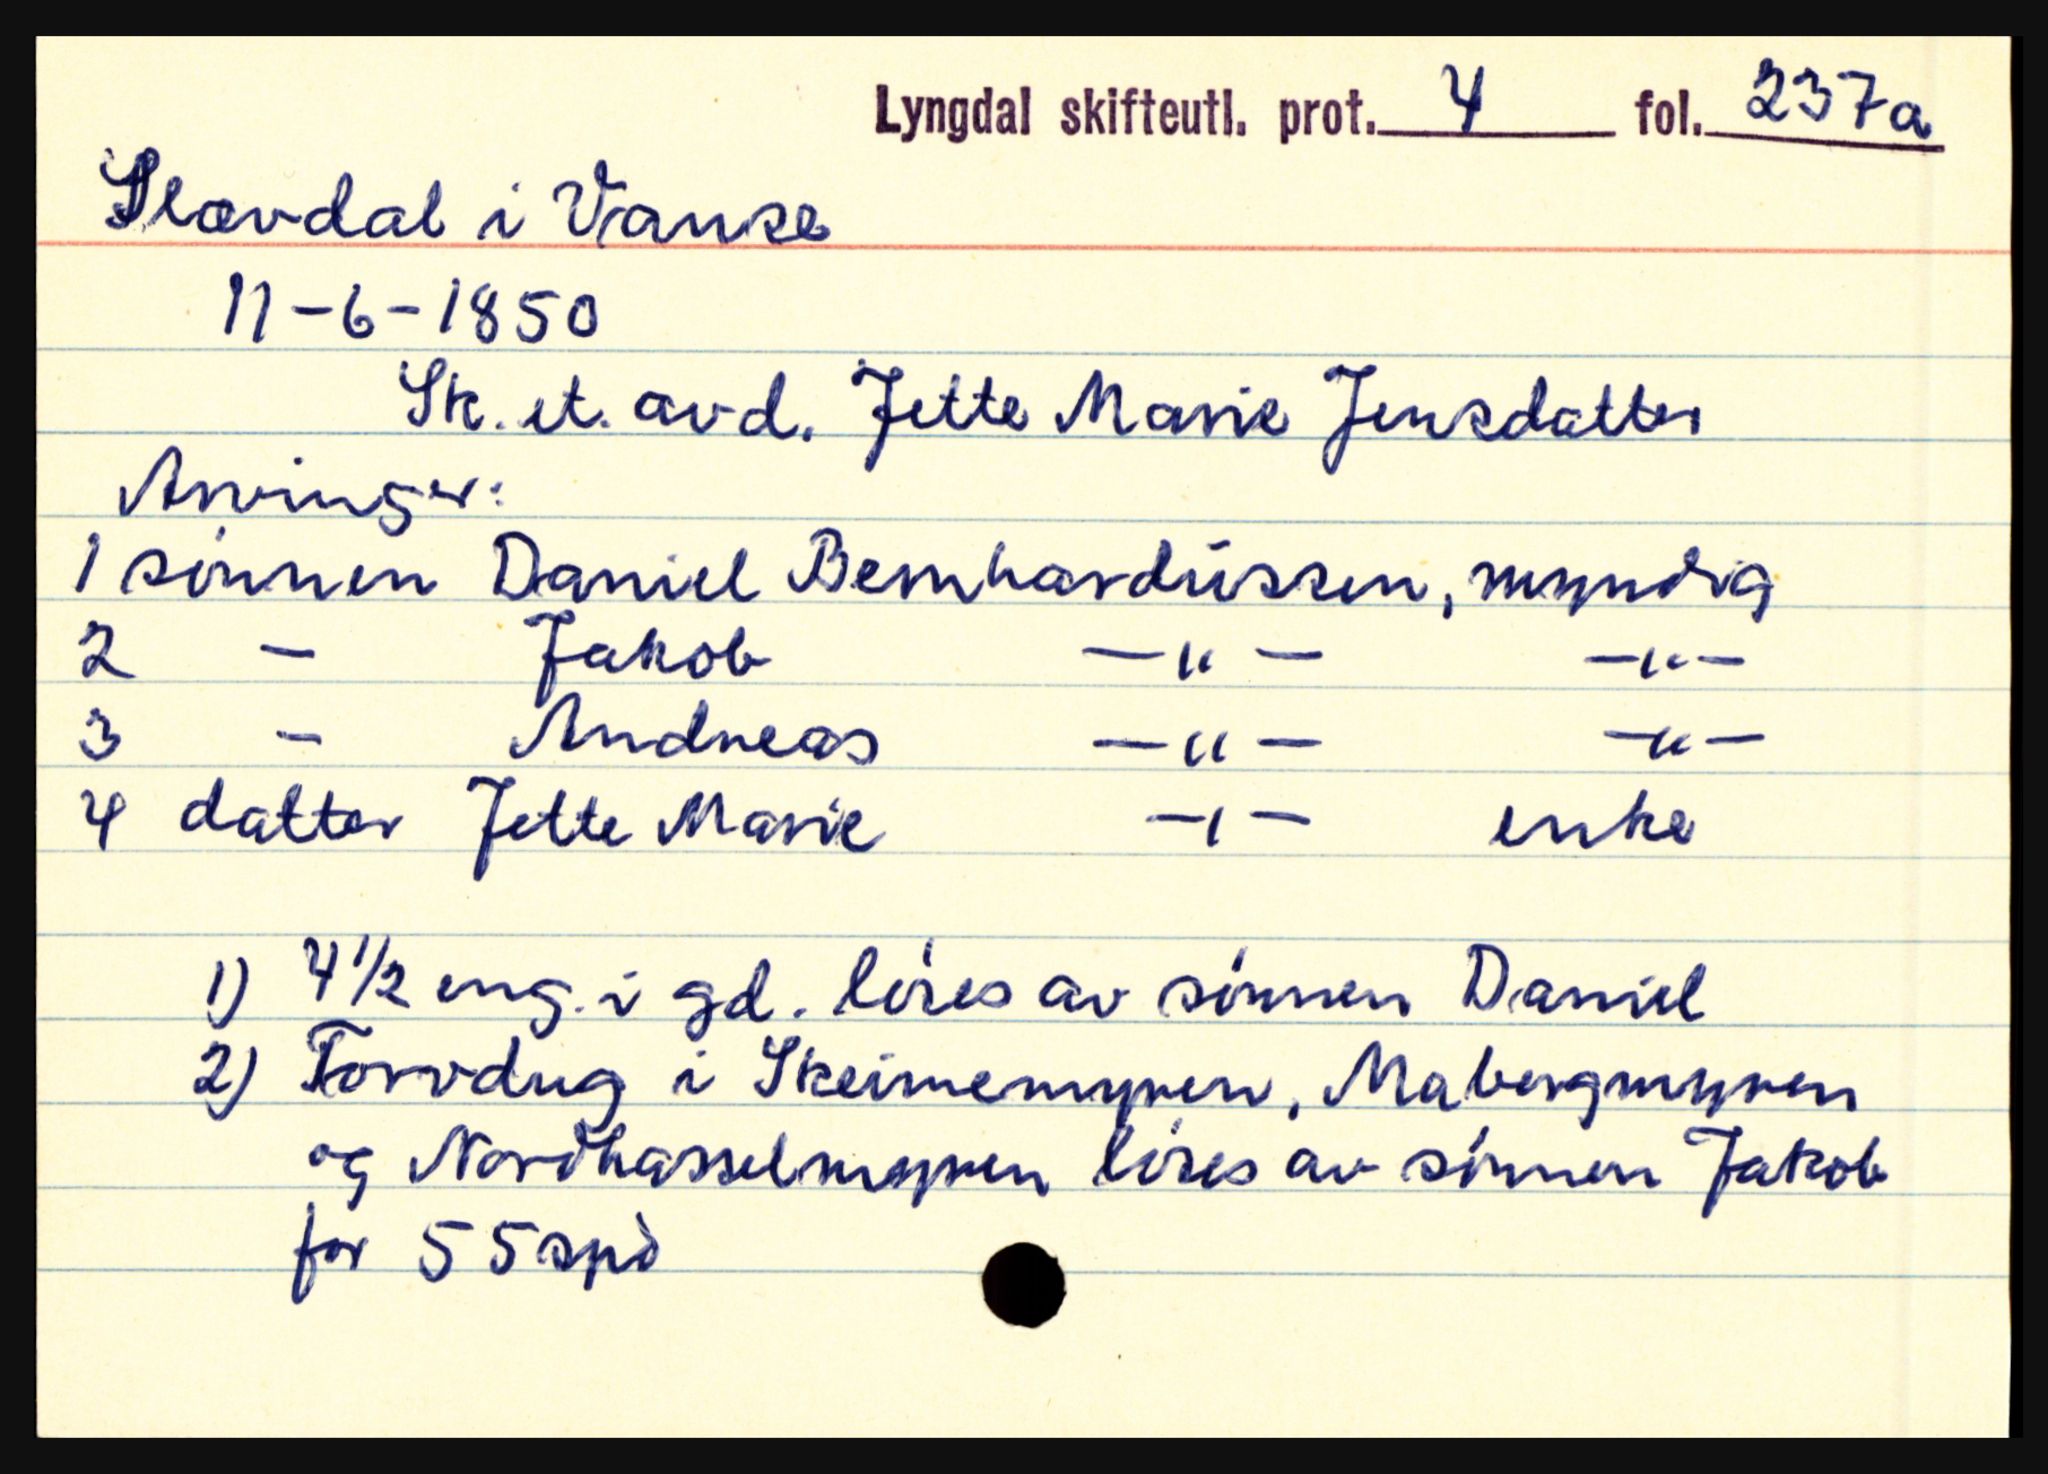 Lyngdal skifteutl. prot. 4 fol. 237a
Slævdal i Vanse
11-6-1850
Sk. et. avd. Jette Marie Jensdatter
Arvinger:
1 sønnen Daniel Bernhardússen, myndig
2 - Jakob -"- -"-
3 - Andreas -"- -"-
4 datter Jette Marie -"- enke
1) 4 1/2 eng. i gd. løses av sønnen Daniel
2) Torvdug i Skeimemyren, Mabergmyren
og Nordhasselmyren løses av sønnen Jakob
for 55 spd